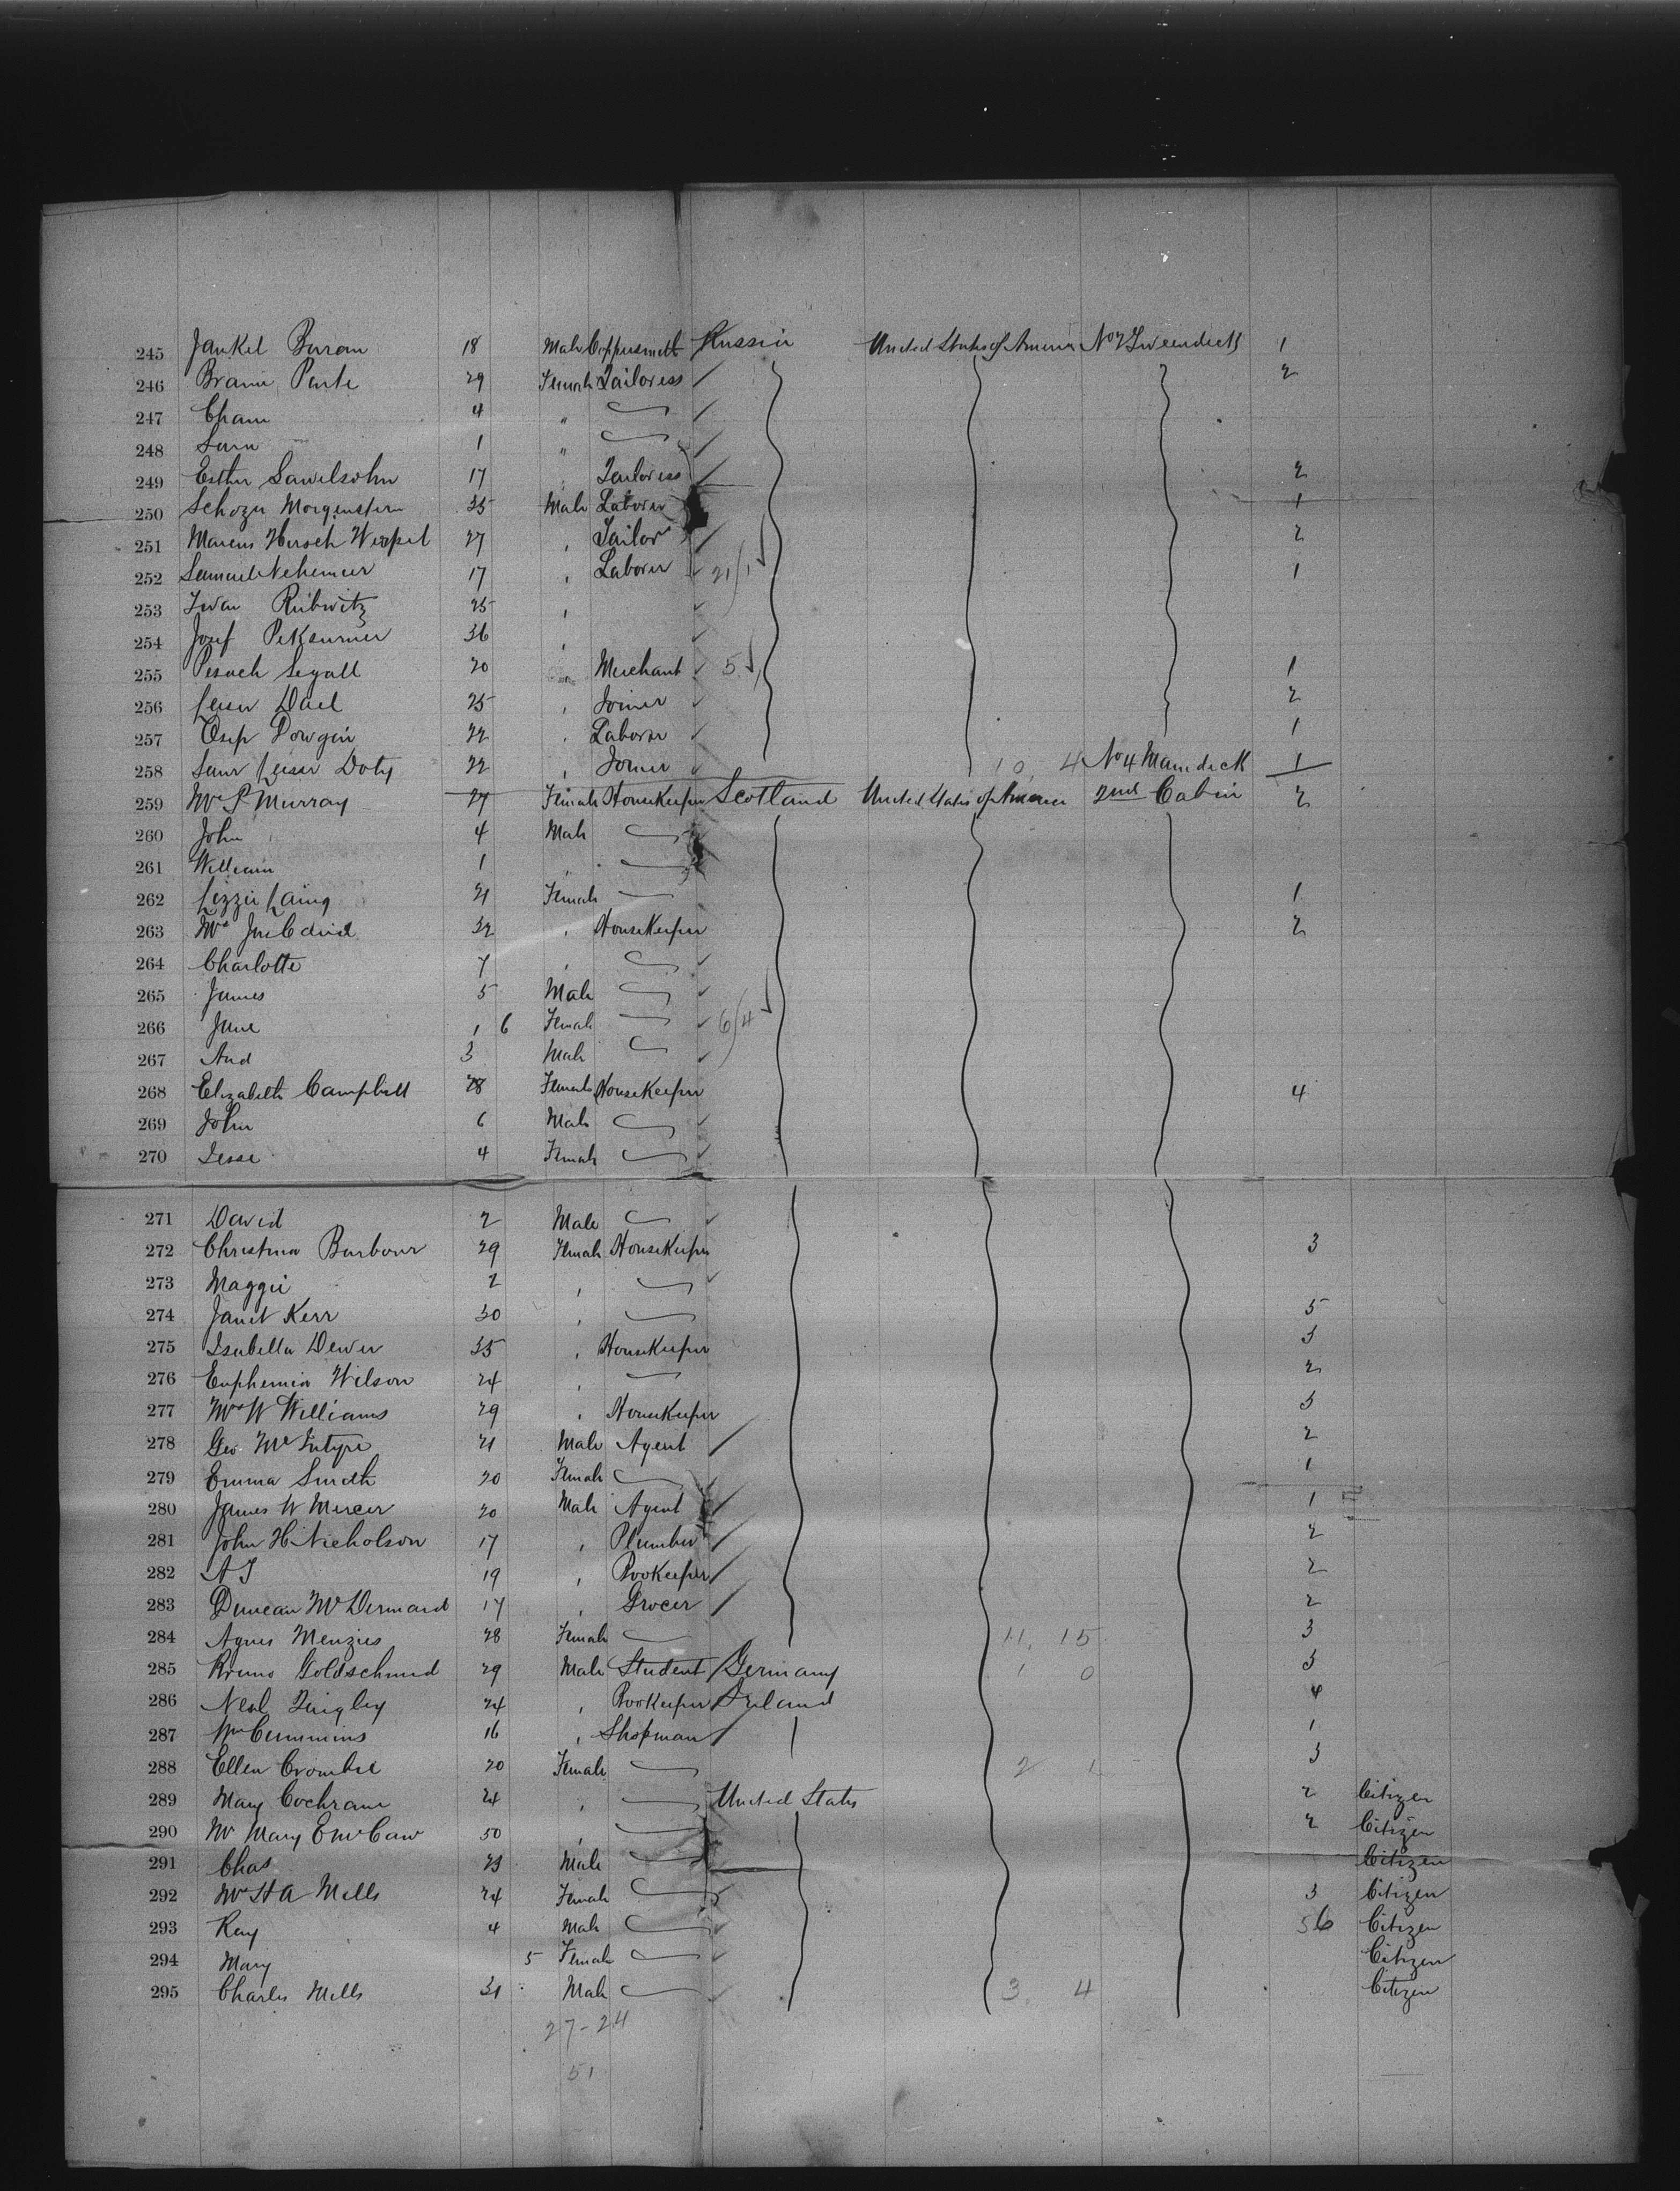 245 Jankel Buran 18 Male Coppersmith Russia United States of America No 2 Tweendeck 1
246 Braine Perle 29 Female Tailoress 2
247 Chane 4 "
248 Sara 1 "
249 Esther Sawelsohn 17 " Tailoress 2
250 Schozer Morgenstern 35 Male Laborer 1
251 Marcus Hersch 27 " Tailor 2
252 Samuel 17 " Laborer 21/1 1
253 Iwan Rubwitz 25 "
254 Josef 36 "
255 Pesach Segall 20 Merchant 5 1
256 Leiser Dael 25 " Joiner 2
257 Osip Dowgin 22 " Laborer 1
258 Leiser Doty 22 " Joiner 10, 4 No 4 Maindeck 1
259 Mrs P Murray 27 Female Housekeeper Scotland United States of America 2nd Cabin 2
260 John 4 Male
261 William 1 "
262 Lizzie Laing 21 Female 1
263 Mrs Jas 32 " Housekeeper 2
264 Charlotte 7 "
265 James 5 Male
266 Jane 1 6 Female 6/4
267 And 3 Male
268 Elizabeth Campbell 28 Female Housekeeper 4
269 John 6 Male
270 Jesse 4 Female
271 David 2 Male
272 Christina Barbour 29 Female Housekeeper 3
273 Maggie 2 "
274 Janet Kerr 30 " 5
275 Isabella Dewer 35 " Housekeeper 3
276 Euphemia Wilson 24 " 2
277 Mrs W Williams 29 " Housekeeper 3
278 Geo McIntyre 21 Male Agent 2
279 Emma Smith 20 Female 1
280 James W Mercer 20 Male Agent 1
281 John H Nicholson 17 " Plumber 2
282 A J 19 " Bookeeper 2
283 Duncan McDermand 17 " Grocer 2
284 Agnes Menzies 28 Female 11, 15 3
285 Bruno Goldschmid 29 Male Student Germany 1 0 3
286 Neal Quigley 24 " Bookeeper Ireland 4
287 Wm Cummins 16 " Shopman 1
288 Ellen Crombie 20 Female 2 1 3
289 Mary Cochrane 24 " United States 2 Citizen
290 Mrs Mary E McCaw 50 " 2 Citizen
291 Chas 23 Male Citizen
292 Mrs H A Mills 24 Female 3 Citizen
293 Ray 4 Male 56 Citizen
294 Mary 5 Female Citizen
295 Charles Mills 31 Male 3, 4 Citizen
27-24
51